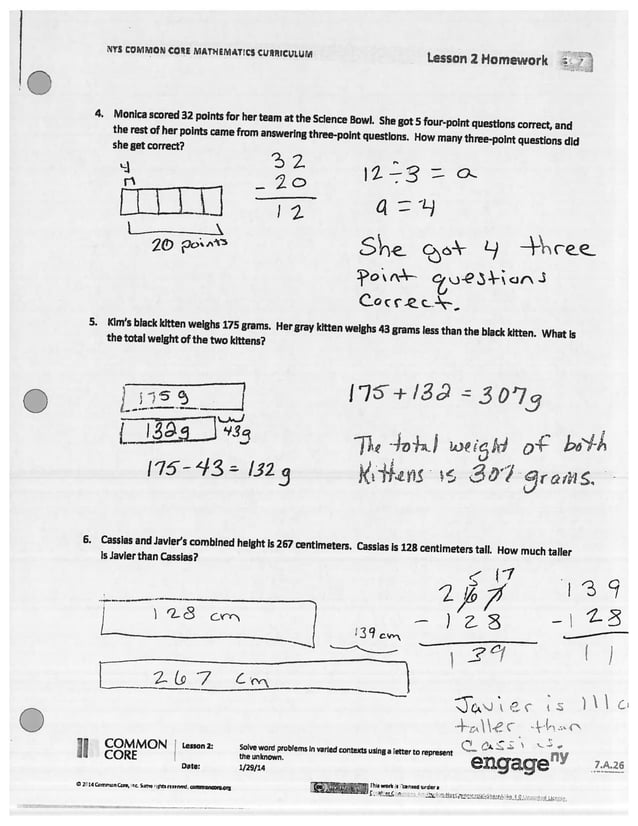 NYS COMMON CORE MATHEMATICS CURRICULUM
Lesson 2 Homework
4. Monica scored 32 points for her team at the Science Bowl. She got 5 four-point questions correct, and
the rest of her points came from answering three-point questions. How many three-point questions did
she get correct?
4
20 points
32
- 20
12
12 ÷ 3 = a
a = 4
She got 4 three
point questions
correct.
5. Kim's black kitten weighs 175 grams. Her gray kitten weighs 43 grams less than the black kitten. What is
the total weight of the two kittens?
175 g
132g
43g
175 - 43 = 132 g
175 + 132 = 307g
The total weight of both
Kittens is 307 grams.
6. Cassias and Javier's combined height is 267 centimeters. Cassias is 128 centimeters tall. How much taller
is Javier than Cassias?
128 cm
139 cm
267 cm
5 17
267
- 128
139
139
- 128
11
Javier is 11 c
taller than
Cassias.
COMMON
CORE
Lesson 2:
Solve word problems in varied contexts using a letter to represent
the unknown.
Date:
1/29/14
engage ny
7.A.26
© 2014 Common Core, Inc. Some rights reserved. commoncore.org
This work is licensed under a